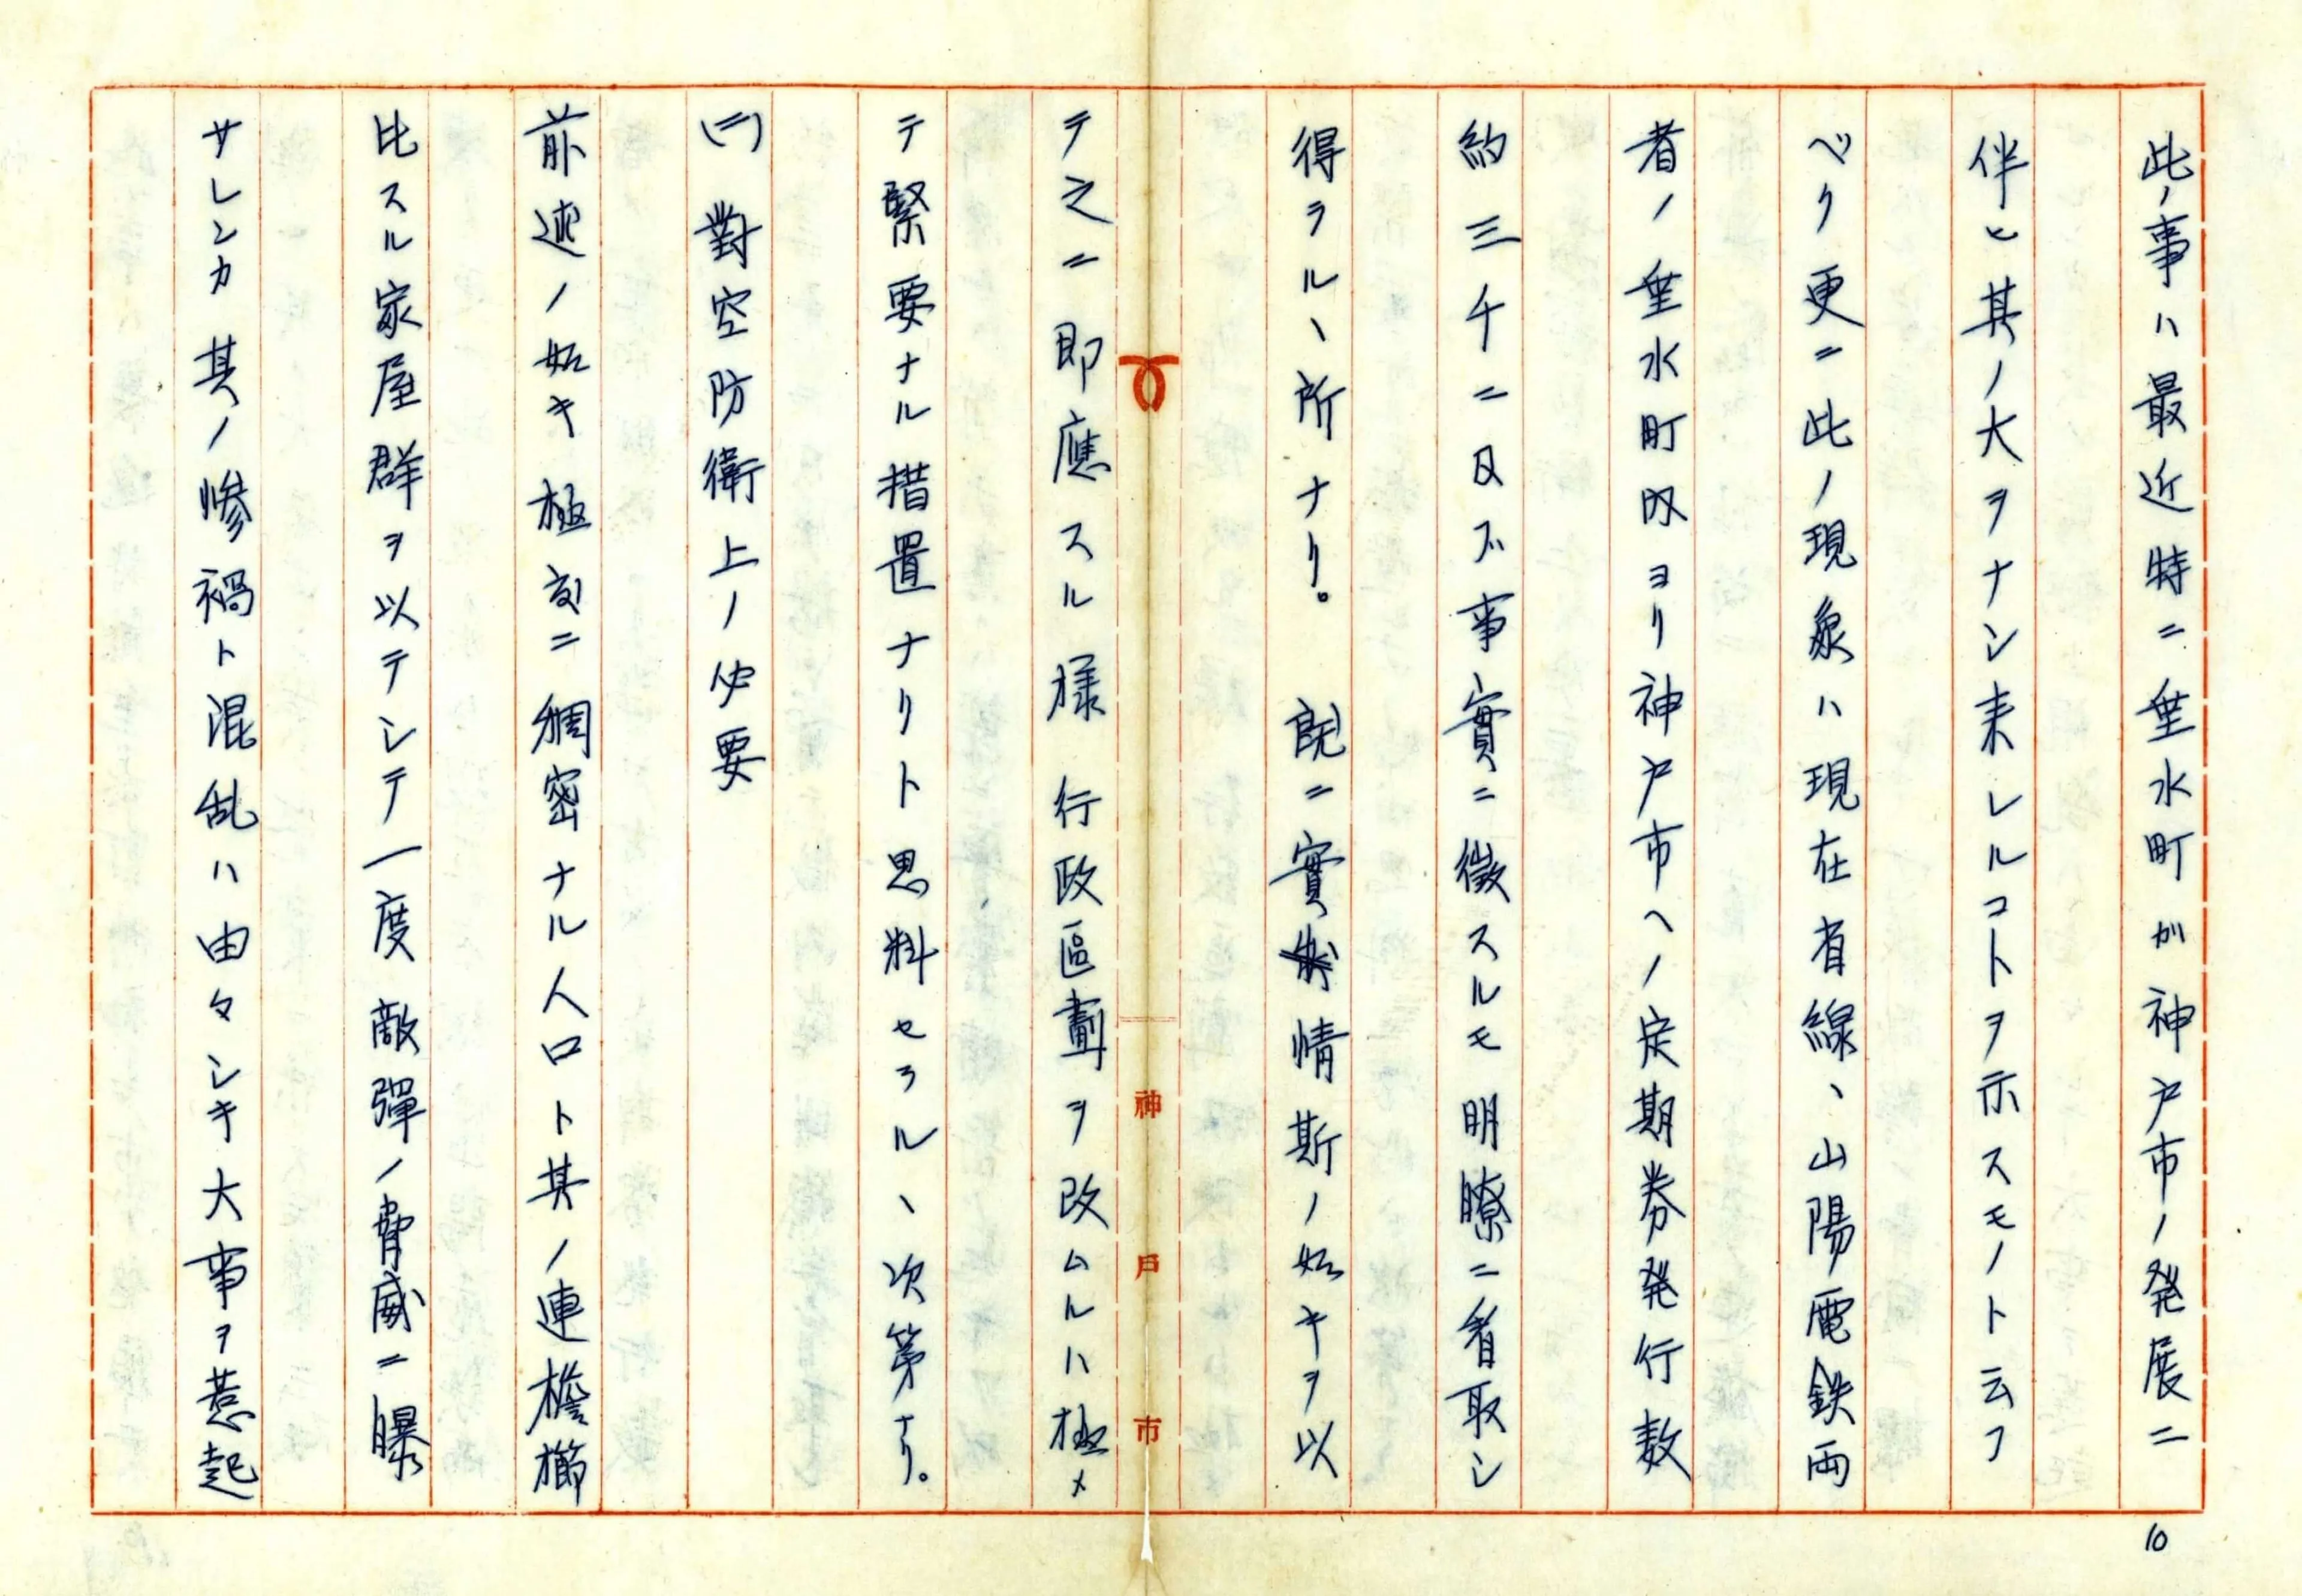 此ノ事ハ最近特ニ垂水町ガ神戸市ノ発展ニ
伴ヒ其ノ大ヲナシ来レルコトヲ示スモノト云フ
ベク更ニ此ノ現象ハ現在省線、山陽電鉄両
者ノ垂水町内ヨリ神戸市ヘノ定期券発行数
約三千ニ及ブ事實ニ徴スルモ明瞭ニ看取シ
得ラルヽ所ナリ。 既ニ實情斯ノ如キヲ以
テ之ニ即應スル様行政區劃ヲ改ムルハ極メ
テ緊要ナル措置ナリト思料セラルヽ次第ナリ。
(二)對空防衛上ノ必要
前述ノ如キ極度ニ稠密ナル人口ト其ノ連檐櫛
比スル家屋群ヲ以テシテ一度敵彈ノ脅威ニ曝
サレンカ其ノ惨禍ト混乱ハ由々シキ大事ヲ惹起
神戸市
10